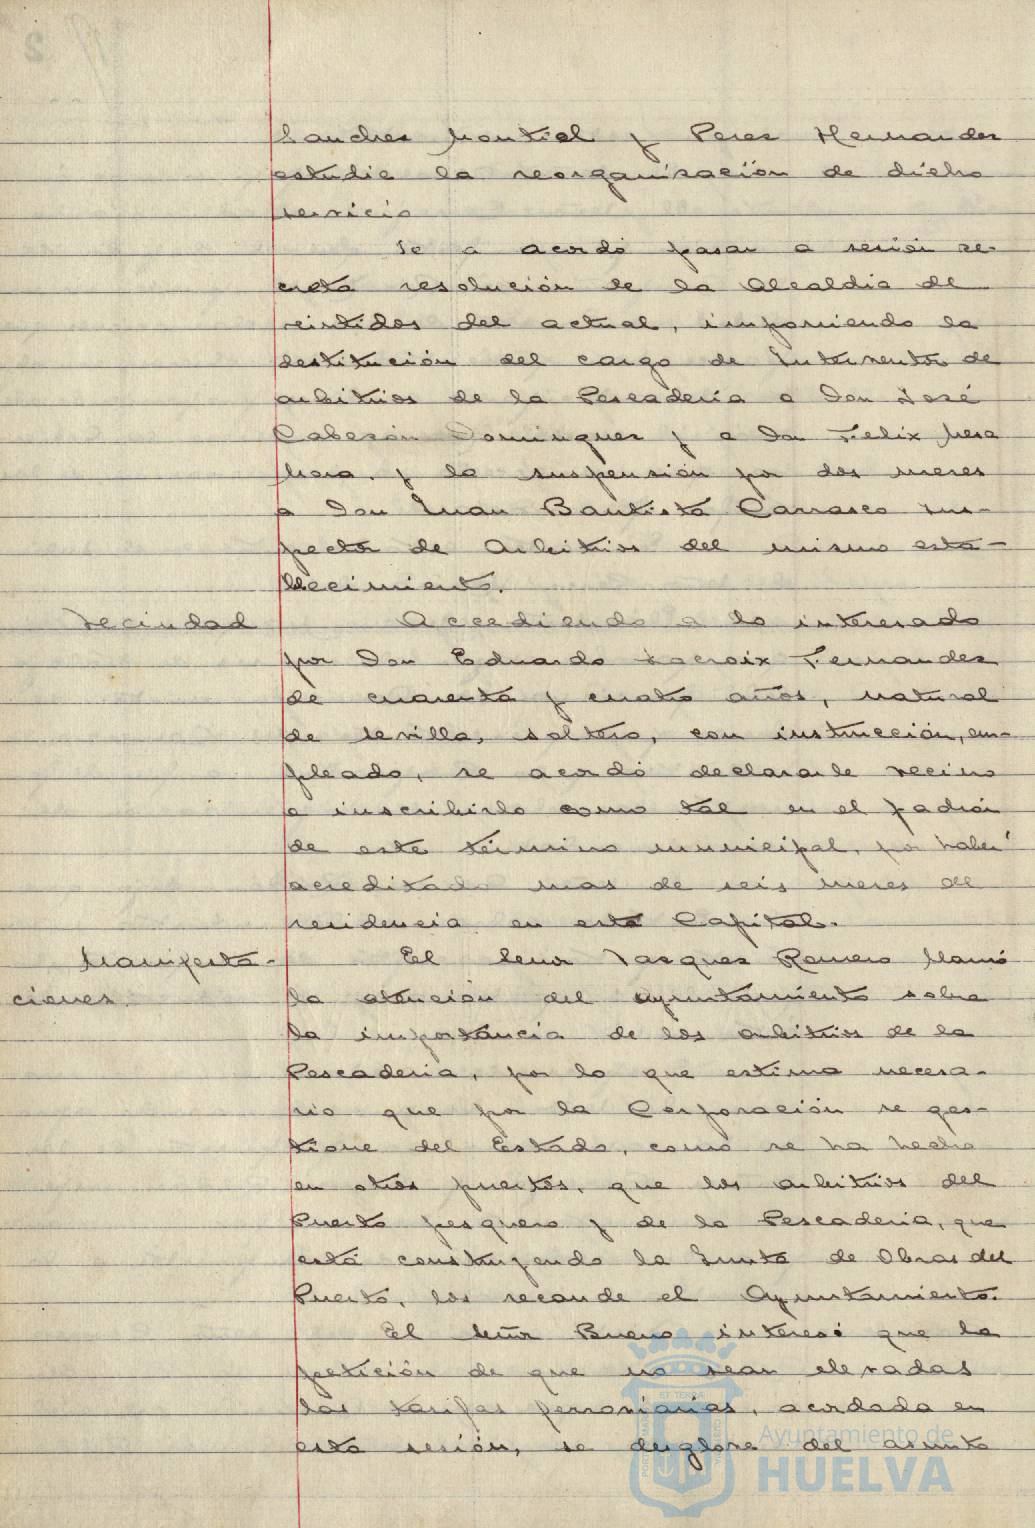 Sanchez Montiel y Perez Hernandez
estudie la reorganización de dicho
servicio
Se a acordó pasar a sesión se-
creta resolución de la Alcaldia de
veintidos del actual, imponiendo la
destitución del cargo de Interventor de
arbitrios de la Pescaderia a Don José
Cabezón Dominguez y a Don Felix
y la suspensión por dos meses
a Don Juan Bautista Carrasco Ins-
pector de Arbitrios del mismo esta-
blecimiento.
Vecindad
Accediendo a lo interesado
por Don Eduardo Lacroix Fernandez
de cuarenta y cuatro años, natural
de Sevilla, soltero, con instrucción, em-
pleado, se acordó declararle vecino
e inscribirlo como tal en el padrón
de este término municipal, por haber
acreditado mas de seis meses de
residencia en esta Capital.
Manifesta-
ciones.
El Señor Vazquez Romero llamó
la atención del Ayuntamiento sobre
la importancia de los arbitrios de la
Pescaderia, por lo que estima necesa-
rio que por la Corporación se ges-
tione del Estado, como se ha hecho
en otros puertos, que los arbitrios del
Puerto pesquero y de la Pescaderia, que
está construyendo la Junta de Obras del
Puerto, los recaude el Ayuntamiento.
El Señor Bueno interesó que la
petición de que no sean elevadas
las tarifas ferroviarias, acordada en
esta sesión, se desglose del asunto
Ayuntamiento de
HUELVA